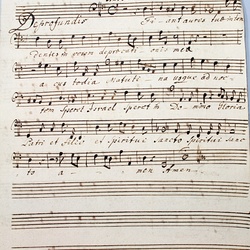 De profundis Fi - ant aures tuae inten
dentes in vocem deprecati - onis meae
a custodia matuti - na usque ad noc -
tem speret Israel speret in Domino Gloria
Patri et Filio et Spiritui Sancto Spiritui Sanc
to a - men Amen